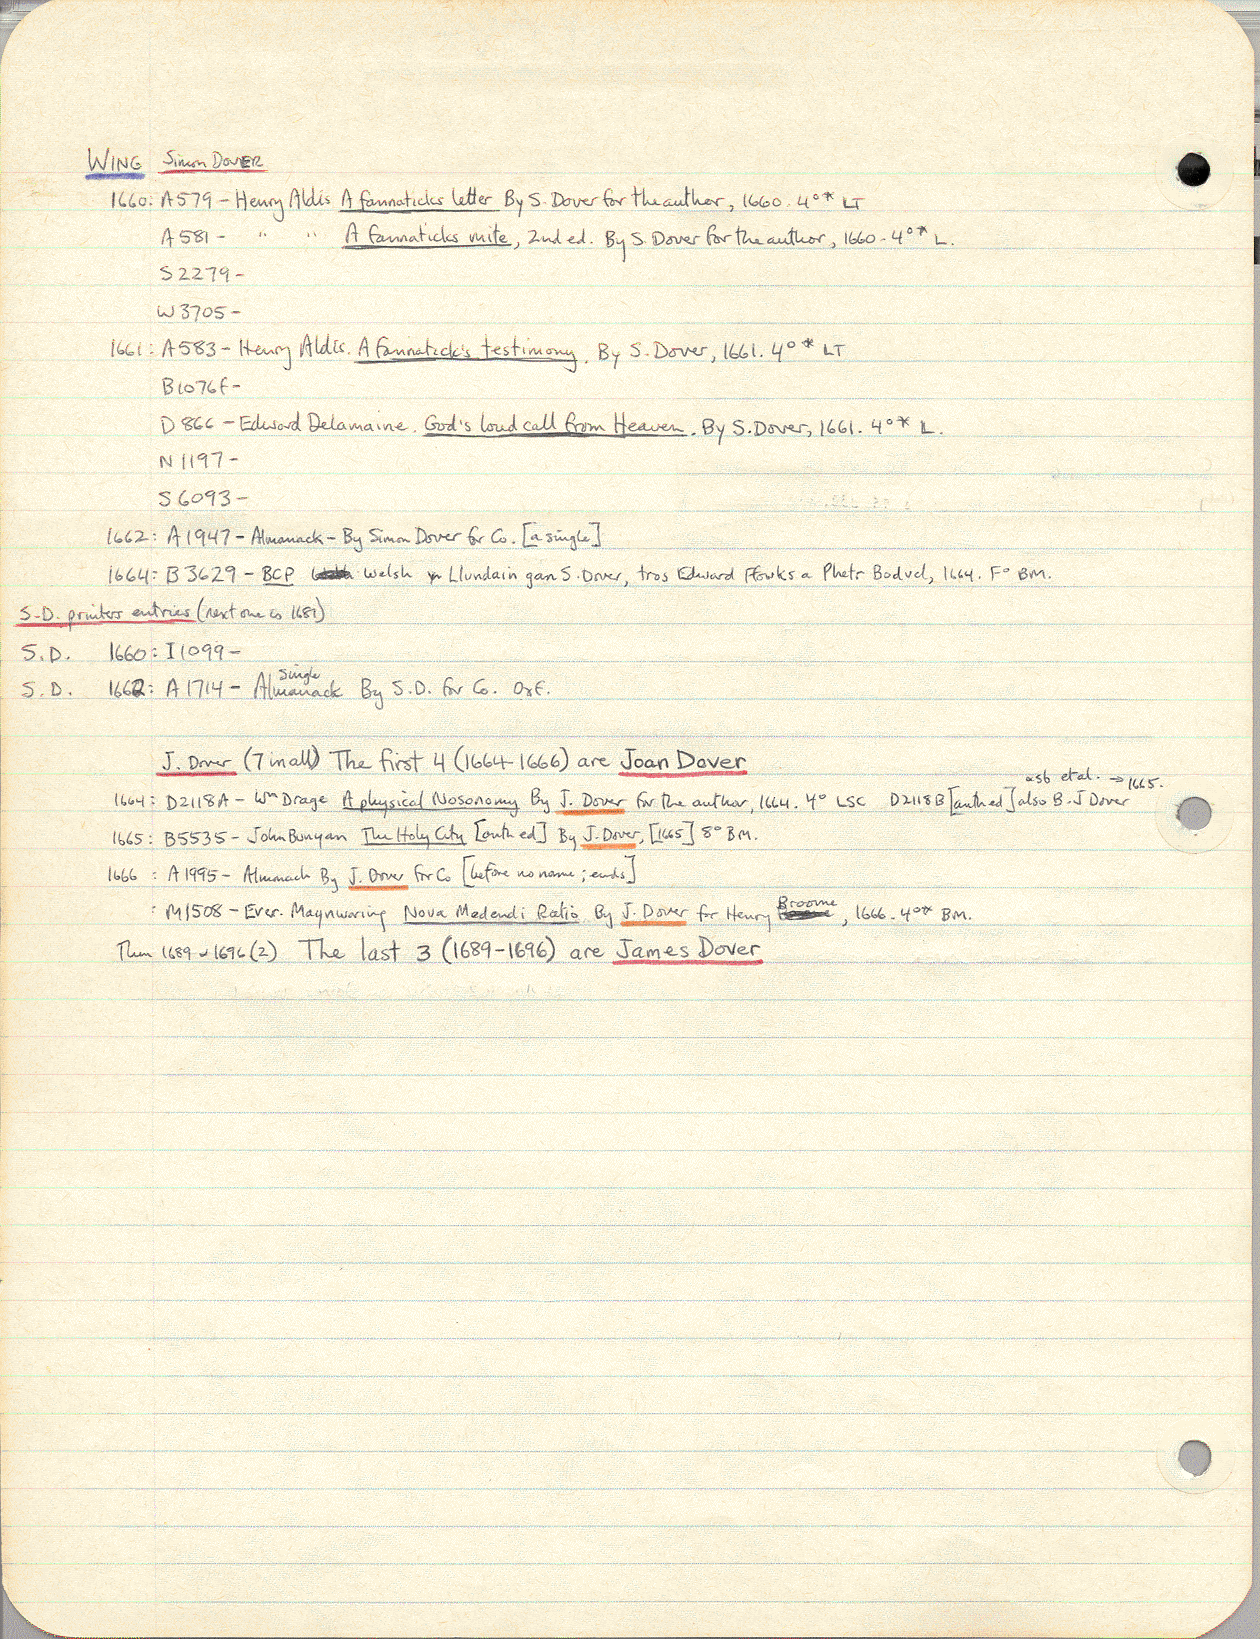 WING Simon DOVER
1660: A579 - Henry Aldis A fannaticks letter By S. Dover for the author, 1660. 4°* LT
A581 - " " A fannaticks mite, 2nd ed. By S. Dover for the author, 1660. 4°* L.
S2279-
W3705-
1661: A583 - Henry Aldis. A fannatick's testimony. By S. Dover, 1661. 4°* LT
B1076F-
D866 - Edward Delamaine. God's loud call from Heaven. By S. Dover, 1661. 4°* L.
N1197-
S6093-
1662: A1947 - Almanack - By Simon Dover for Co. [a single]
1664: B3629 - BCP Welsh yn Llundain gan S. Dover, tros Edward Ffowks a Phetr Bodvel, 1664. F° BM.
S.D. printers entries (next one is 1681)
S.D. 1660: I1099-
S.D. 1662: A1714 - single Almanack By S.D. for Co. Oxf.
J. Dover (7 in all) The first 4 (1664-1666) are Joan Dover
asb et al. → 1665.
1664: D2118A - Wm Drage A physical Nosonomy By J. Dover for the author, 1664. 4° LSC D2118B [anthed] also B. J Dover
1665: B5535 - John Bunyan The Holy City [anth ed] By J. Dover, [1665] 8° BM.
1666: A1995 - Almanack By J. Dover for Co [before no name; ends]
: M1508 - Ever. Maynwaring Nova Medendi Ratio. By J. Dover for Henry Broome, 1666. 4°* BM.
Then 1689 & 1696 (2) The last 3 (1689-1696) are James Dover